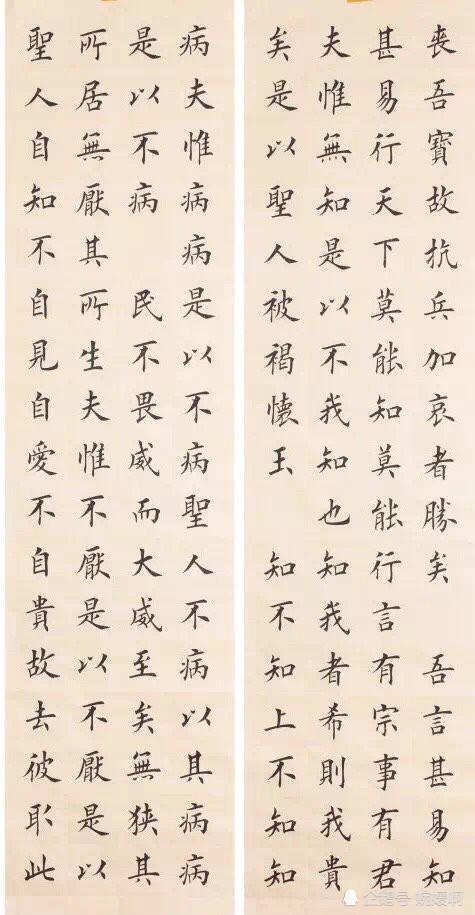 喪吾寶故抗兵加哀者勝矣 吾言甚易知
甚易行天下莫能知莫能行言有宗事有君
夫惟無知是以不我知也知我者希則我貴
矣是以聖人被褐懷玉 知不知上不知知
病夫惟病病是以不病聖人不病以其病病
是以不病 民不畏威而大威至矣無狹其
所居無厭其所生夫惟不厭是以不厭是以
聖人自知不自見自愛不自貴故去彼取此
企鹅号